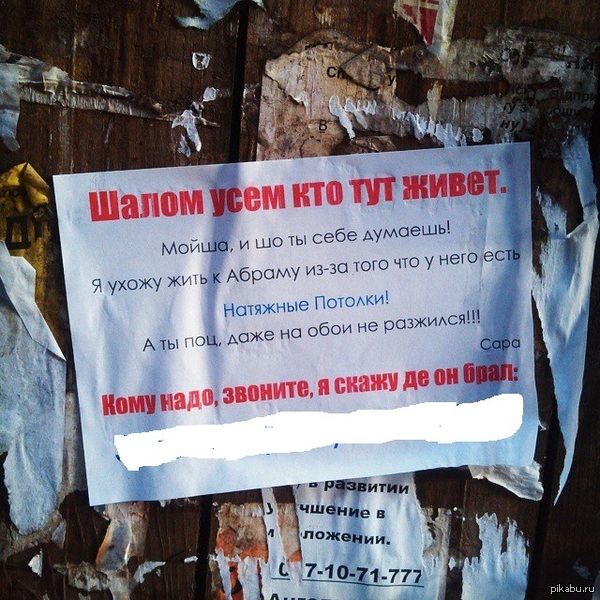 Шалом усем кто тут живет.
Мойша, и шо ты себе думаешь!
Я ухожу жить к Абраму из-за того что у него есть
Натяжные Потолки!
А ты поц, даже на обои не разжился!!!
Сара
Кому надо, звоните, я скажу де он брал:
в развитии
чшение в
ложении.
7-10-71-777
pikabu.ru